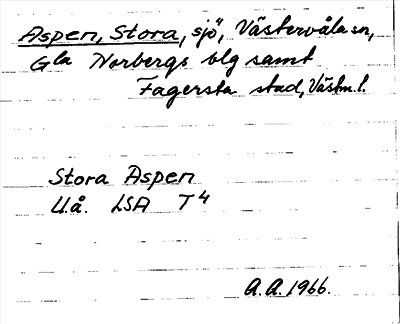 Aspen, Stora, sjö, Västervåla sn,
Gla Norbergs blg samt
Fagersta stad, Västm. l.
Stora Aspen
U.å. LSA T4
A.A. 1966.